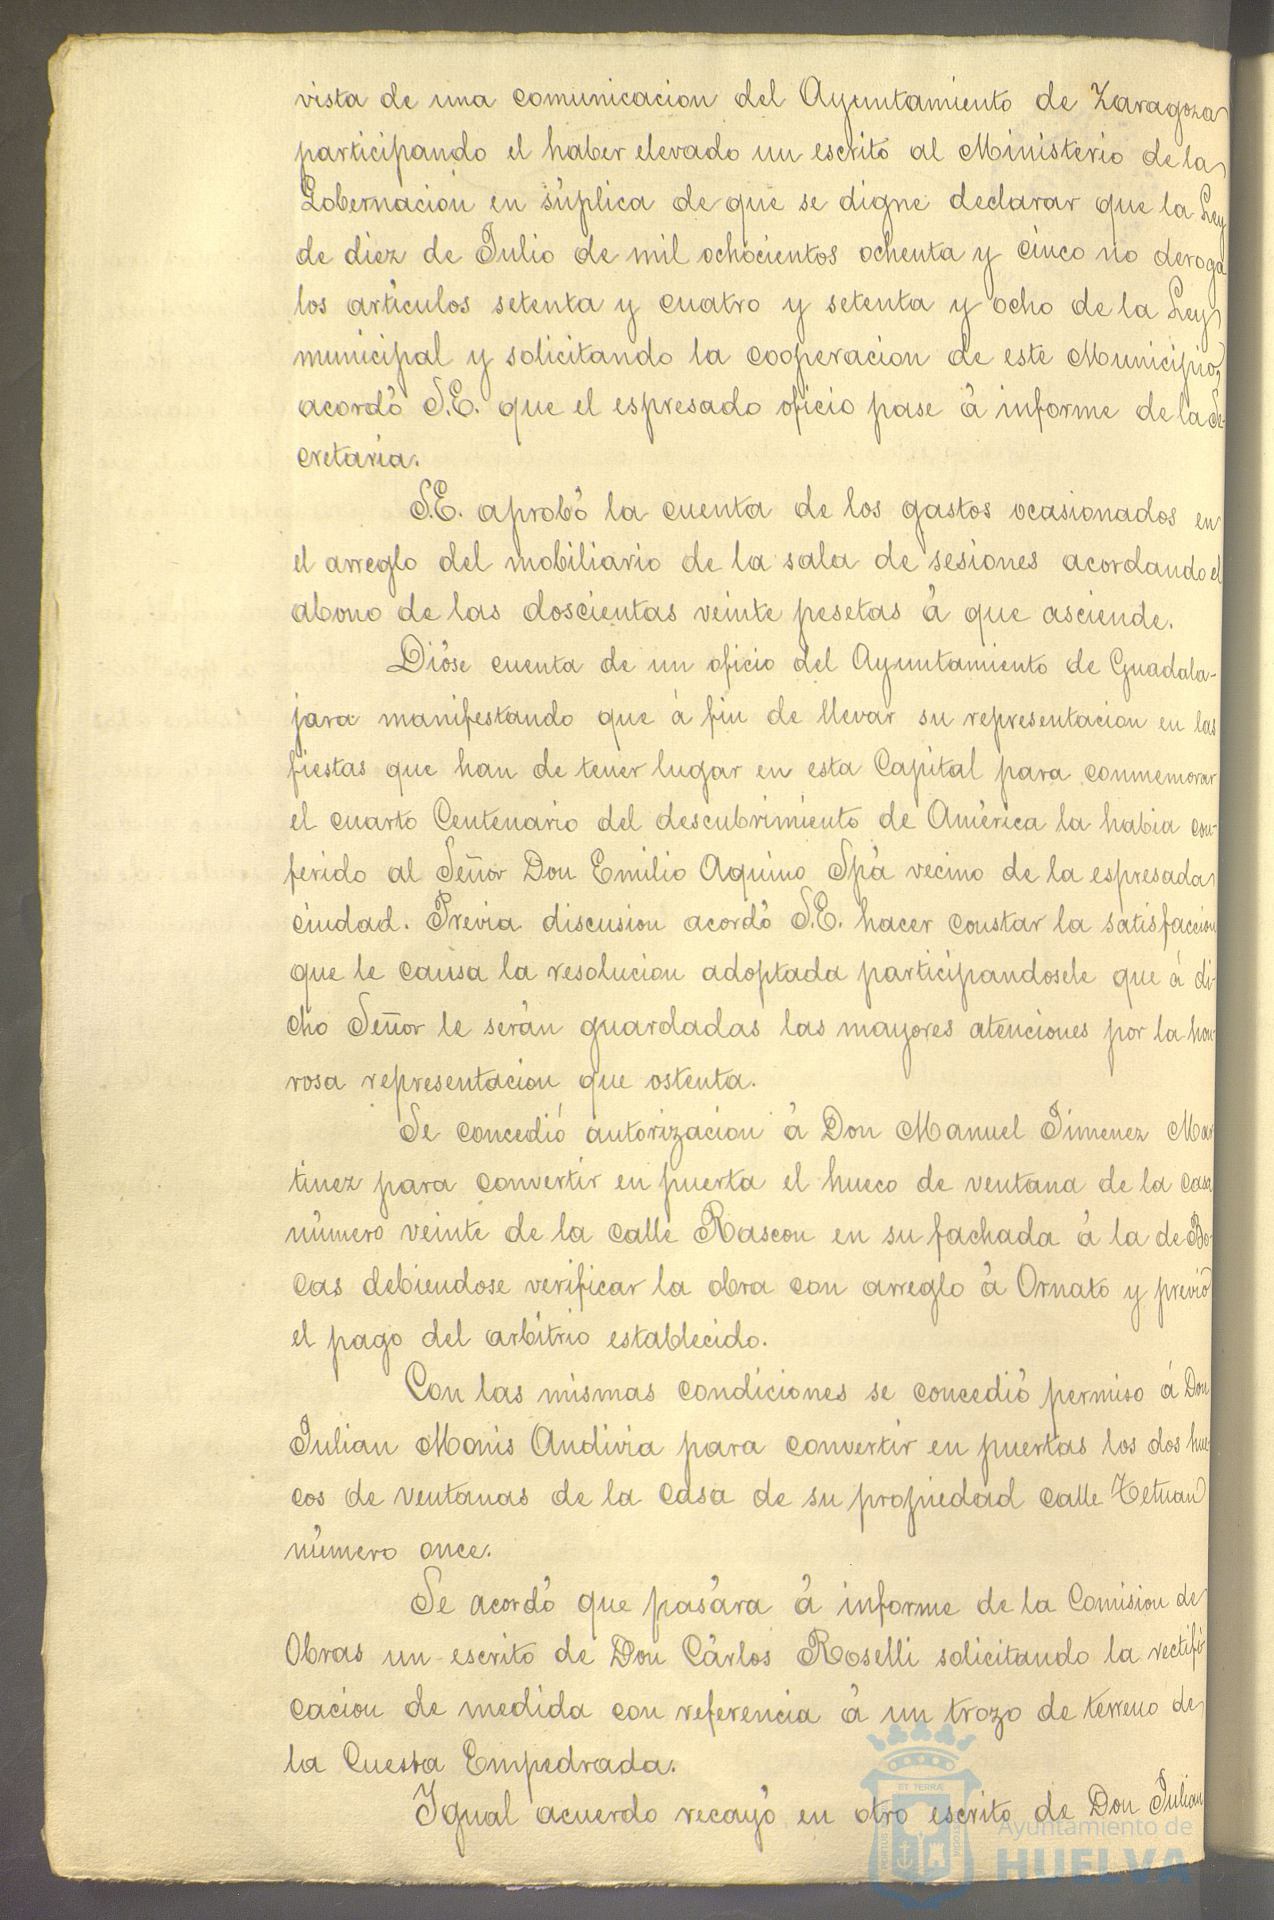 vista de una comunicacion del Ayuntamiento de Zaragoza
participando el haber elevado un escrito al Ministerio de la
Gobernación en súplica de que se digne declarar que la Ley
de diez de Julio de mil ochocientos ochenta y cinco no deroga
los artículos setenta y cuatro y setenta y ocho de la Ley
municipal y solicitando la cooperacion de este Municipio,
acordó S.E. que el espresado oficio pase á informe de la Se-
cretaria.
S.E. aprobó la cuenta de los gastos ocasionados en
el arreglo del mobiliario de la sala de sesiones acordando el
abono de las doscientas veinte pesetas á que asciende.
Dióse cuenta de un oficio del Ayuntamiento de Guadala-
jara manifestando que á fin de llevar su representacion en las
fiestas que han de tener lugar en esta Capital para conmemorar
el cuarto Centenario del descubrimiento de América la habia con-
ferido al Señor Don Emilio Aquino Spá vecino de la espresada
ciudad. Prévia discusion acordó S.E. hacer constar la satisfaccion
que le causa la resolucion adoptada participandosele que á di-
cho Señor le serán guardadas las mayores atenciones por la hon-
rosa representacion que ostenta.
Se concedió autorizacion á Don Manuel Jimenez Mar
tinez para convertir en puerta el hueco de ventana de la casa
número veinte de la calle Rascon en su fachada á la de Bo-
cas debiendose verificar la obra con arreglo á Ornato y previo
el pago del arbitrio establecido.
Con las mismas condiciones se concedió permiso á Don
Julian Monis Andivia para convertir en puertas los dos hue-
cos de ventanas de la casa de su propiedad calle Tetuan
número once.
Se acordó que pasára á informe de la Comision de
Obras un escrito de Don Cárlos Roselli solicitando la rectifi
cacion de medida con referencia á un trozo de terreno de
la Cuesta Empedrada.
Igual acuerdo recayó en otro escrito de Don Julian
Ayuntamiento de
HUELVA